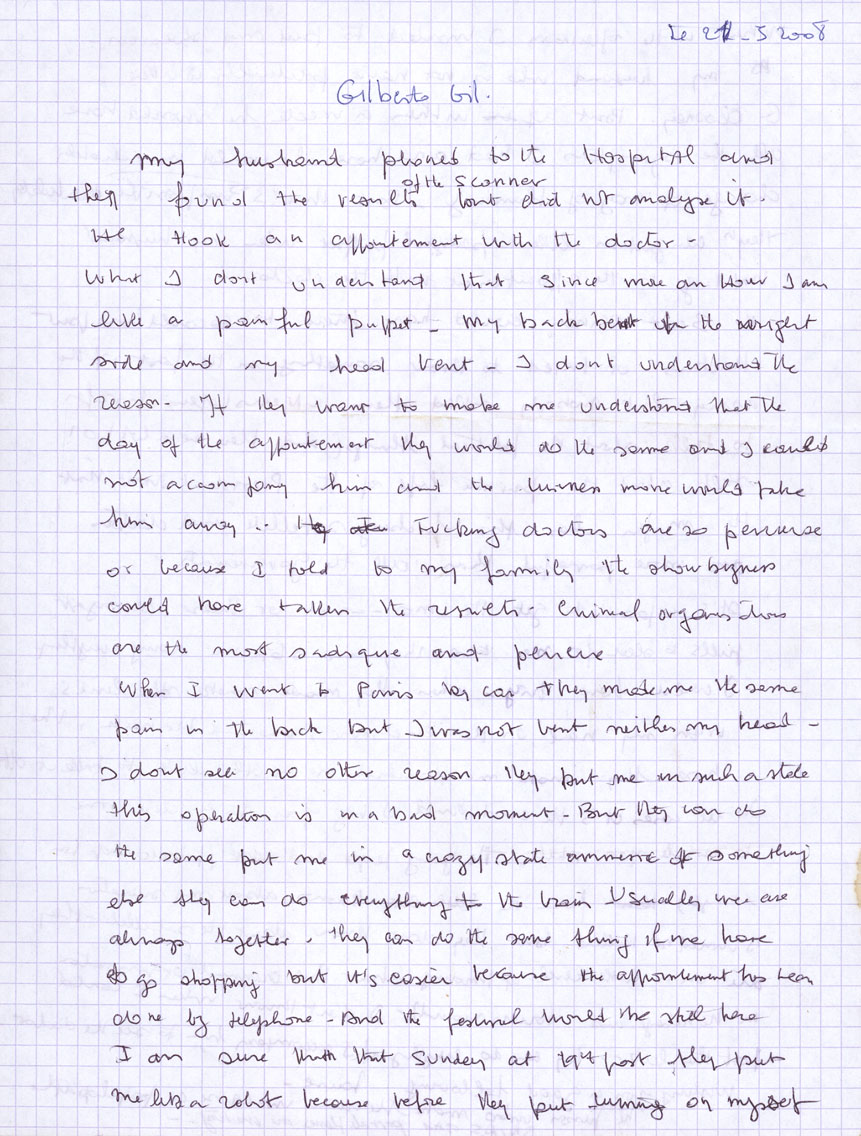 Le 21_5 2008
Gilberto Gil.
my husband phoned to the Hospital and
they found the results of the scanner but did not analyse it.
He took an appointement with the doctor -
What I dont understant that since more an Hour I am
like a painful puppet _ my back bent on the right
side and my head bent - I dont understand the
reason - If they want to make me understand that the
day of the appointement they would do the same and I could
not accompany him and the more would take
him away .. Fucking doctors are so perverse
or because I told to my family the show bizness
could have taken the results - Criminal organisations
are the most sadique and perverse
When I went to Paris by car they made me the same
pain in the back but I was not bent neither my head -
I dont see no other reason they put me in such a state
this operation is in a bad moment - But they can do
the same put me in a crazy state or something
else they can do everything to the brain Usually we are
always together . they can do the same thing if we have
to go shopping but it's easier because the appointement has been
done by telephone - And the festival would be still here
I am sure that Sunday at past they put
me like a robot because before they put on myself